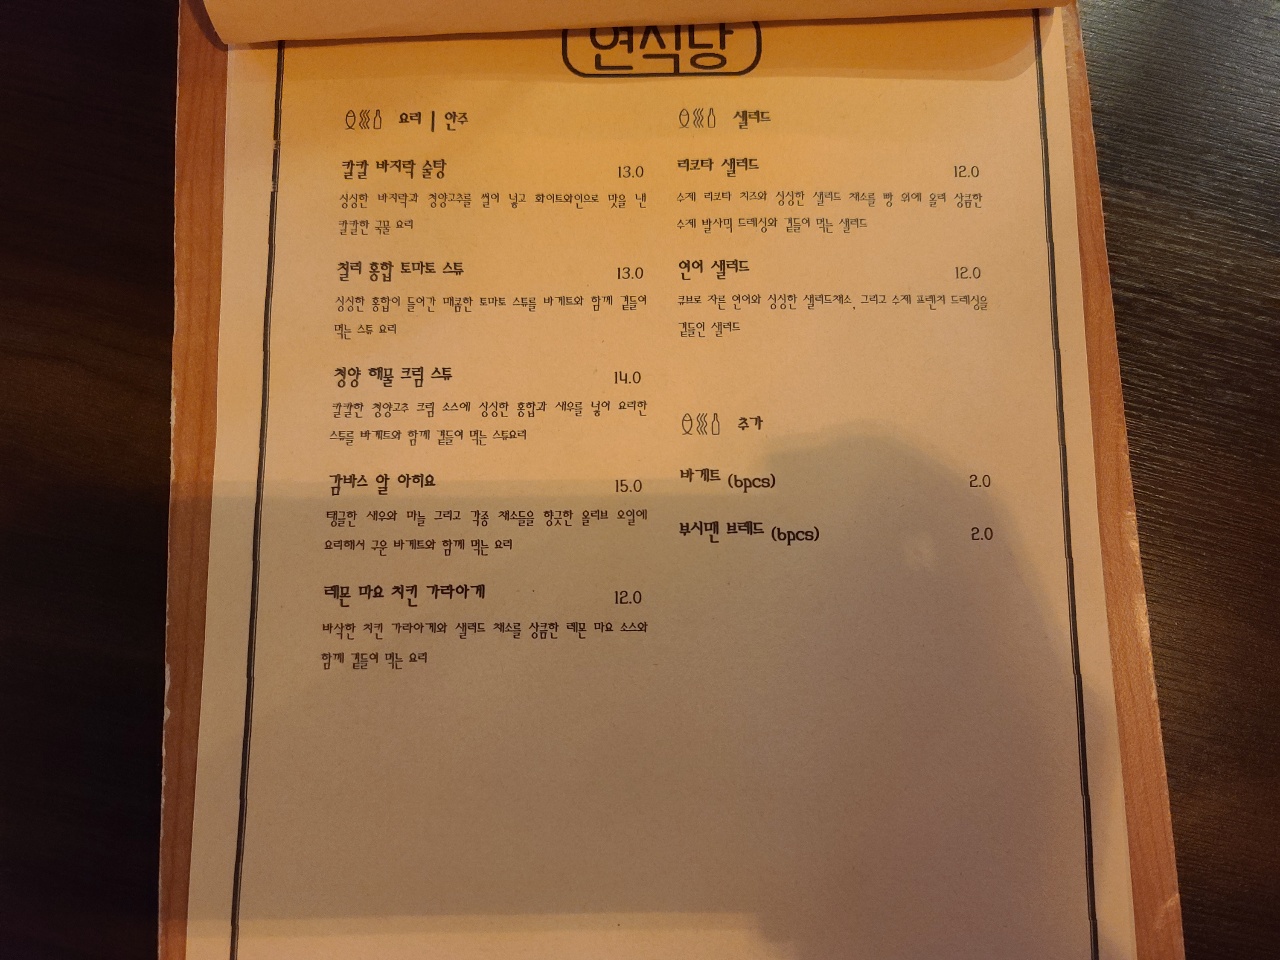 연식당
요리 | 안주
칼칼 바지락 술탕 13.0
싱싱한 바지락과 청양고추를 썰어 넣고 화이트와인으로 맛을 낸
칼칼한 국물 요리
칠리 홍합 토마토 스튜 13.0
싱싱한 홍합이 들어간 매콤한 토마토 스튜를 바게트와 함께 곁들여
먹는 스튜 요리
청양 해물 크림 스튜 14.0
칼칼한 청양고추 크림 소스에 싱싱한 홍합과 새우를 넣어 요리한
스튜를 바게트와 함께 곁들여 먹는 스튜요리
감바스 알 아히요 15.0
탱글한 새우와 마늘 그리고 각종 채소들을 향긋한 올리브 오일에
요리해서 구운 바게트와 함께 먹는 요리
레몬 마요 치킨 가라아게 12.0
바삭한 치킨 가라아게와 샐러드 채소를 상큼한 레몬 마요 소스와
함께 곁들여 먹는 요리
샐러드
리코타 샐러드 12.0
수제 리코타 치즈와 싱싱한 샐러드 채소를 빵 위에 올려 상큼한
수제 발사믹 드레싱와 곁들여 먹는 샐러드
연어 샐러드 12.0
큐브로 자른 연어와 싱싱한 샐러드채소, 그리고 수제 프렌치 드레싱을
곁들인 샐러드
추가
바게트 (6pcs) 2.0
부시맨 브레드 (6pcs) 2.0